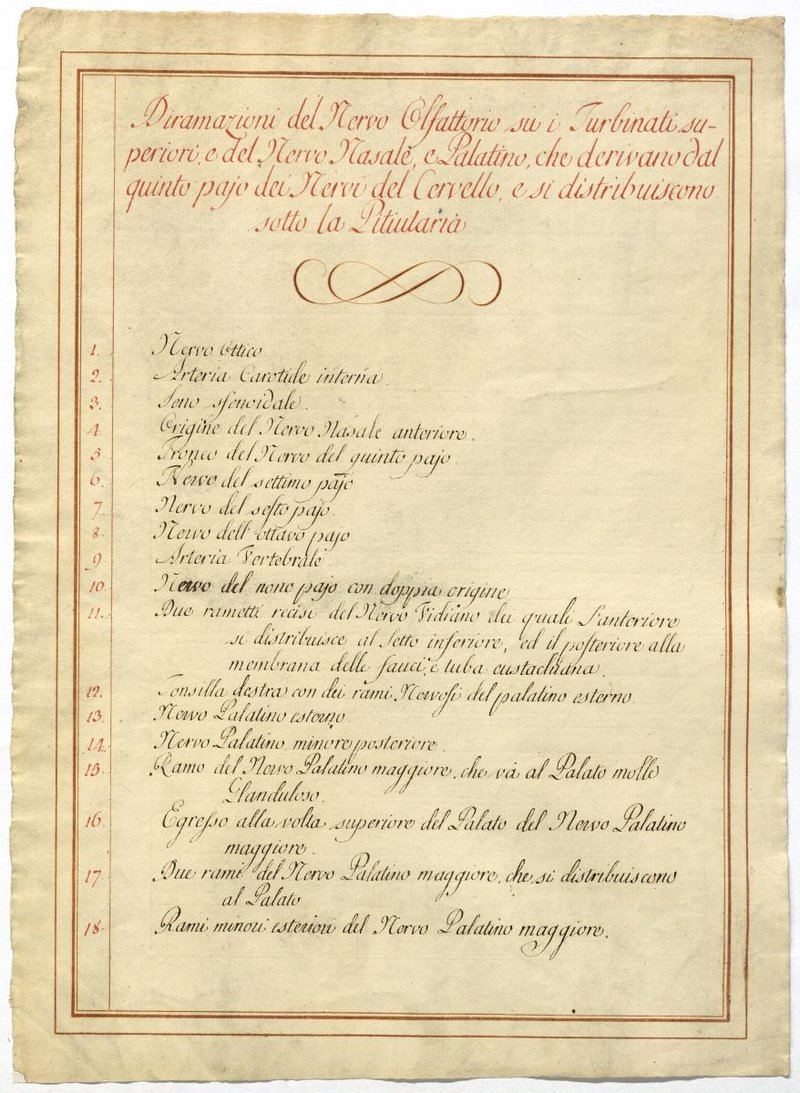 Diramazioni del Nervo Olfattorio su i Turbinati su-
periori, e del Nervo Nasale, e Palatino, che derivano dal
quinto pajo dei Nervi del Cervello, e si distribuiscono
sotto la Pitiutaria
1. Nervo Ottico
2. Arteria Carotide interna.
3. Seno sfenoidale.
4. Origine del Nervo Nasale anteriore.
5 Tronco del Nervo del quinto pajo.
6. Nervo del settimo pajo
7. Nervo del sesto pajo.
8. Nervo dell' ottavo pajo
9 Arteria Vertebrale
10 Nervo del nono pajo con doppia origine
11. Due rametti recisi del Nervo Vidiano da quali l'anteriore
si distribuisce al Setto inferiore, ed il posteriore alla
membrana delle fauci, e tuba eustachiana.
12. Tonsilla destra con dei rami Nervosi del palatino esterno.
13. Nervo Palatino esterno
14. Nervo Palatino minore posteriore.
15. Ramo del Nervo Palatino maggiore, che va al Palato molle
Glanduloso.
16. Egresso alla volta superiore del Palato del Nervo Palatino
maggiore.
17. Due rami del Nervo Palatino maggiore, che si distribuiscono
al Palato
18. Rami minori esteriori del Nervo Palatino maggiore.